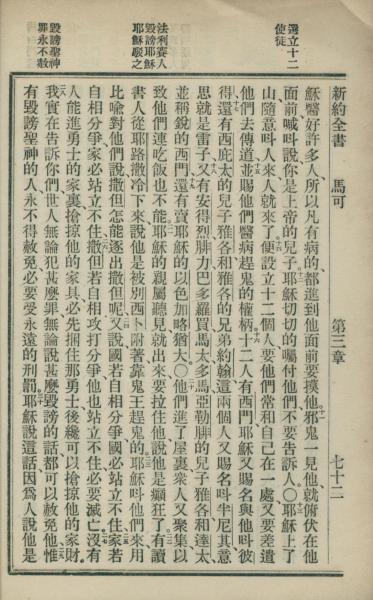 新約全書 馬可 第三章 七十二
選立十二
使徒
法利賽人
毀謗耶穌
耶穌駁之
毀謗聖神
罪永不赦
穌醫好許多人所以凡有病的都進到他面前要摸他邪鬼一見他就俯伏在他
面前喊叫說你是上帝的兒子耶穌切切的囑付他們不要告訴人〇耶穌上了
山隨意叫人來人就來了便設立十二個人要他們常和自己在一處又要差遣
他們去傳道並賜他們醫病趕鬼的權柄十二人有西門耶穌又賜名與他叫彼
得還有西庇太的兒子雅各和雅各的兄弟約翰這兩個人又賜名叫半尼其意
思就是雷子又有安得烈腓力巴多羅買馬太多馬亞勒腓的兒子雅各和達太
並稱銳的西門還有賣耶穌的以色加略猶大〇他們進了屋裏衆人又聚集以
致他們連吃飯也不能耶穌的親屬聽見就出來要拉住他說他是癲狂了有讀
書人從耶路撒冷下來說他是被別西卜附著靠鬼王趕鬼的耶穌叫他們來用
比喻對他們說撒但怎能逐出撒但呢又說國若自相分爭國必站立不住家若
自相分爭家必站立不住撒但若自相攻打分爭他也站立不住必要滅亡沒有
人能進勇士的家裏搶掠他的家具必先捆住那勇士後纔可以搶掠他的家財
我實在告訴你們世人無論犯甚麼罪無論說甚麼毀謗的話都可以赦免他惟
有毀謗聖神的人永不得赦免必要受永遠的刑罰耶穌說這話因爲人說他是